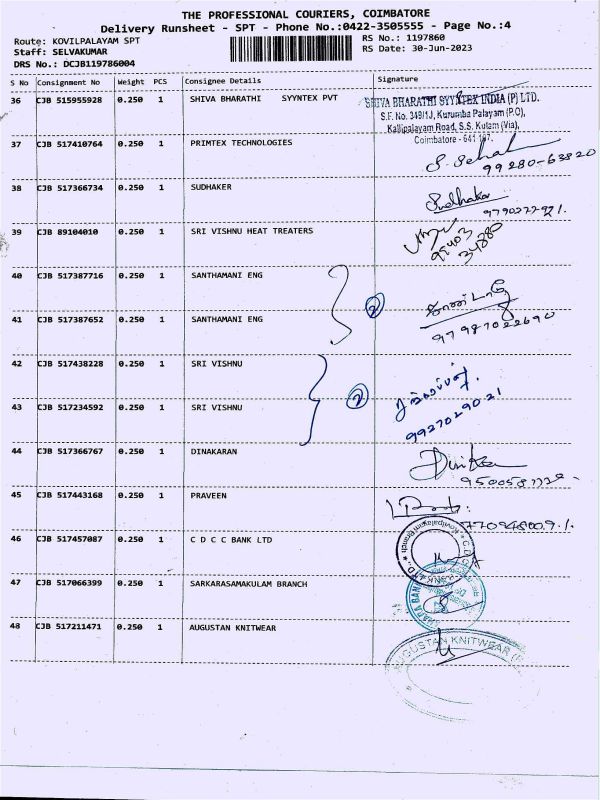 THE PROFESSIONAL COURIERS, COIMBATORE
Delivery Runsheet - SPT - Phone No.:0422-3505555 - Page No.:4
Route: KOVILPALAYAM SPT
Staff: SELVAKUMAR
DRS No.: DCJB119786004
RS No.: 1197860
RS Date: 30-Jun-2023
S No Consignment No Weight PCS Consignee Details Signature
36 CJB 515955928 0.250 1 SHIVA BHARATHI SYYNTEX PVT
SHIVA BHARATHI SYYNTEX INDIA (P) LTD.
S.F. No. 349/1J, Kurumba Palayam (P.O),
Kallipalayam Road, S.S. Kulam (Via),
Coimbatore - 641 107.
37 CJB 517410764 0.250 1 PRIMTEX TECHNOLOGIES
99280-63820
38 CJB 517366734 0.250 1 SUDHAKER Sudhakar
39 CJB 89104010 0.250 1 SRI VISHNU HEAT TREATERS
40 CJB 517387716 0.250 1 SANTHAMANI ENG
2
41 CJB 517387652 0.250 1 SANTHAMANI ENG
42 CJB 517438228 0.250 1 SRI VISHNU
2
43 CJB 517234592 0.250 1 SRI VISHNU
9927029021
44 CJB 517366767 0.250 1 DINAKARAN
45 CJB 517443168 0.250 1 PRAVEEN
46 CJB 517457087 0.250 1 C D C C BANK LTD
47 CJB 517066399 0.250 1 SARKARASAMAKULAM BRANCH
48 CJB 517211471 0.250 1 AUGUSTAN KNITWEAR
AUGUSTAN KNITWEAR (P)